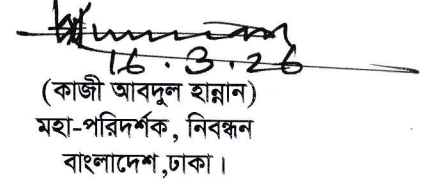 16.3.26
(কাজী আবদুল হান্নান)
মহা-পরিদর্শক, নিবন্ধন
বাংলাদেশ,ঢাকা।